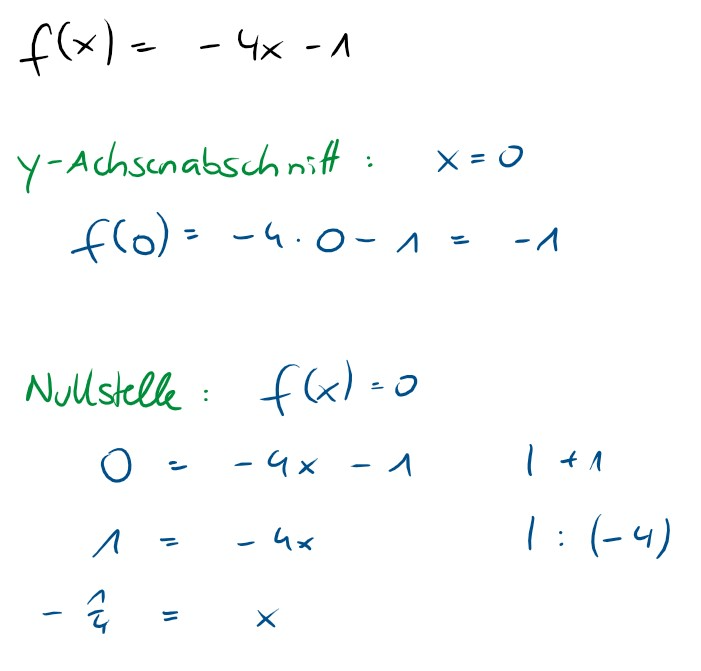 f(x) = - 4x - 1
y-Achsenabschnitt : x = 0
f(0) = -4 · 0 - 1 = -1
Nullstelle : f(x) = 0
0 = - 4x - 1 | + 1
1 = - 4x | : (-4)
- 1/4 = x